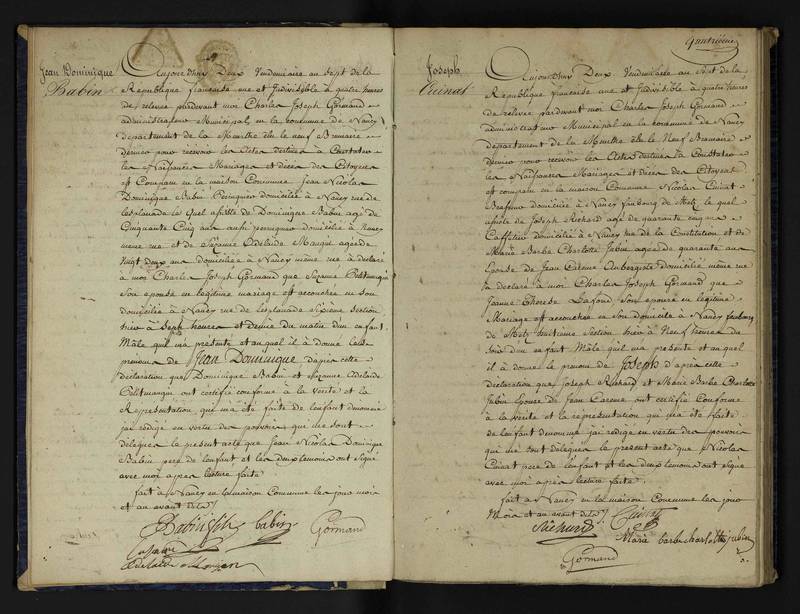 Jean Dominique
Babin
Aujourd'huy Deux Vendemiaire an Sept de la
Republique francaise une et Indivisible à quatre heures
de relevée pardevant moi Charles Joseph Gormand
administrateur Municipal en la Commune de Nancy
département de la Meurthe élu le neuf Brumaire
dernier pour recevoir les Actes destinés à Constater
les Naissances Mariages et décès des Citoyens
est Comparu en la maison Commune Jean Nicolas
Dominique Babin Perruquier domicilié à Nancy rue de
lesplanade le quel assisté de Dominique Babin agé de
Cinquante Cinq ans aussi perruquier domicilié à Nancy
meme rue et de Suzanne Adelaide Mangin agée de
Vingt deux ans domiciliée à Nancy même rue à declaré
à moi Charles Joseph Gormand que Suzanne
Son épouse en légitime mariage est accouchée en son
domicile à Nancy rue de lesplanade Sixieme Section
hier à Sept heures et demie du matin d'un Enfant
Mâle qui m'a presenté et auquel il à donné les
prenoms de Jean Dominique d'apres cette
declaration que Dominique Babin et Suzanne Adelaide
ont certifié conforme à la verité et la
Representation qui m'a été faite de l'enfant denommé
jai redigé en vertu des pouvoirs qui me sont
delegués le present acte que Jean Nicolas Dominique
Babin pere de l'enfant et les deux temoins ont signé
avec moi apres lecture faite
fait à Nancy en la maison Commune les jour mois
et an avant dits
Babin fils babin Gormand
adelaide
quatrieme
Joseph
Cuinat
Aujourd'huy Deux Vendemiaire an Sept de la
Republique francaise une et Indivisible à quatre heures
de relevée pardevant moi Charles Joseph Gormand
administrateur Municipal en la Commune de Nancy
département de la Meurthe élu le Neuf Brumaire
dernier pour recevoir les Actes destinés à Constater
les Naissances Mariages et décès des Citoyens
est comparu en la maison Commune Nicolas Cuinat
Brasseur domicilié à Nancy faubourg de Metz le quel
assisté de Joseph Richard agé de quarante cinq ans
Caffetier domicilié à Nancy rue de la Constitution et de
Marie Barbe Charlotte Jubin agée de quarante ans
Epouse de Jean Careme Aubergiste domiciliée même rue
a declaré à moi Charles Joseph Gormand que
Jeanne Therese Lafond Son epouse en légitime
Mariage est accouchée en Son domicile à Nancy faubourg
de Metz huitieme Section hier à Neuf heures du
soir d'un enfant Mâle qui m'a presenté et auquel
il à donné le prenom de Joseph d'après cette
declaration que Joseph Richard et Marie Barbe Charlotte
Jubin Epouse de Jean Careme ont certifié Conforme
à la verité et la representation qui m'a été faite
de l'enfant denommé jai redigé en vertu des pouvoirs
qui me sont delegués le present acte que Nicolas
Cuinat pere de l'enfant et les deux temoins ont signé
avec moi apres lecture faite.
fait à Nancy en la maison Commune les jour
Mois et an avant dits
Richard Cuinat
Marie barbe charlotte jubin
Gormand